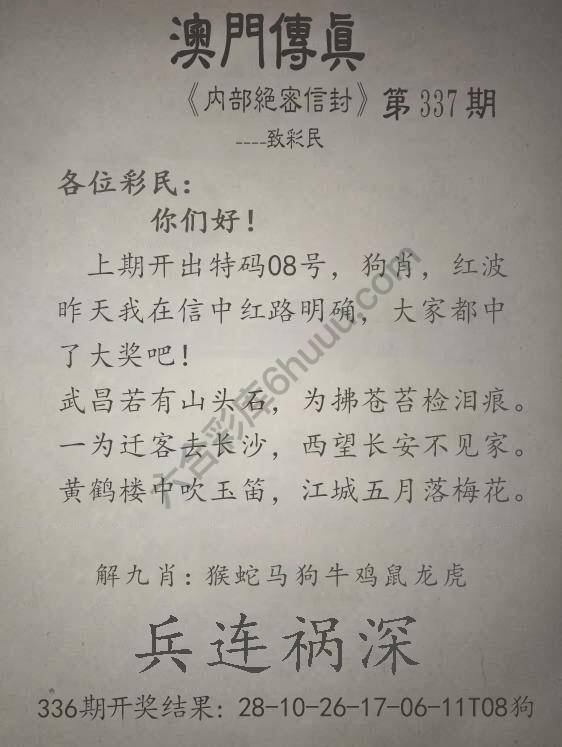 澳門傳真
《内部絕密信封》第337期
----致彩民
各位彩民：
你们好！
上期开出特码08号，狗肖，红波
昨天我在信中红路明确，大家都中
了大奖吧！
武昌若有山头石，为拂苍苔检泪痕。
一为迁客去长沙，西望长安不见家。
黄鹤楼中吹玉笛，江城五月落梅花。
六合彩库6huuu.com
解九肖：猴蛇马狗牛鸡鼠龙虎
兵连祸深
336期开奖结果：28-10-26-17-06-11T08狗